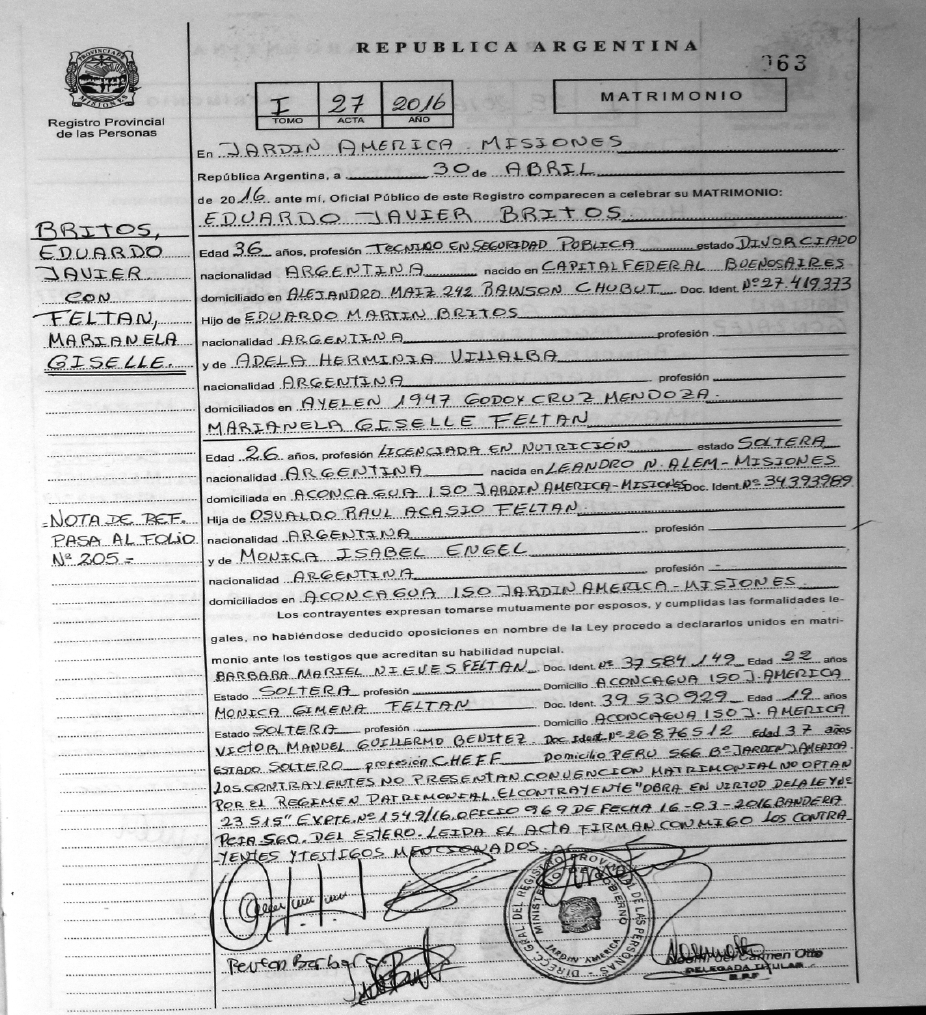 REPUBLICA ARGENTINA
063
PROVINCIA DE MISIONES
Registro Provincial
de las Personas
I 27 2016
TOMO ACTA AÑO
MATRIMONIO
En JARDIN AMERICA. MISIONES
República Argentina, a 30 de ABRIL
de 2016. ante mí, Oficial Público de este Registro comparecen a celebrar su MATRIMONIO:
EDUARDO JAVIER BRITOS
BRITOS,
EDUARDO
JAVIER
CON
FELTAN,
MARIANELA
GISELLE.
Edad 36 años, profesión TECNICO EN SEGURIDAD PUBLICA estado DIVORCIADO
nacionalidad ARGENTINA nacido en CAPITAL FEDERAL BUENOS AIRES
domiciliado en ALEJANDRO MAIZ 242 RAWSON CHUBUT Doc. Ident. Nº 27.419.373
Hijo de EDUARDO MARTIN BRITOS
nacionalidad ARGENTINA profesión
y de ADELA HERMINIA VILLALBA
nacionalidad ARGENTINA profesión
domiciliados en AYELEN 1947 GODOY CRUZ MENDOZA.
MARIANELA GISELLE FELTAN
Edad 26 años, profesión LICENCIADA EN NUTRICIÓN estado SOLTERA
nacionalidad ARGENTINA nacida en LEANDRO N. ALEM - MISIONES
domiciliada en ACONCAGUA 150 JARDIN AMERICA - MISIONES Doc. Ident. Nº 34393989
Hija de OSVALDO RAUL ACASIO FELTAN
nacionalidad ARGENTINA profesión
y de MONICA ISABEL ENGEL
nacionalidad ARGENTINA profesión -
domiciliados en ACONCAGUA 150 JARDIN AMERICA - MISIONES.
- NOTA DE REF.
PASA AL FOLIO
Nº 205 -
Los contrayentes expresan tomarse mutuamente por esposos, y cumplidas las formalidades le-
gales, no habiéndose deducido oposiciones en nombre de la Ley procedo a declararlos unidos en matri-
monio ante los testigos que acreditan su habilidad nupcial.
BARBARA MARIEL NIEVES FELTAN Doc. Ident. Nº 37584149 Edad 22 años
Estado SOLTERA profesión Domicilio ACONCAGUA 150 J. AMERICA
MONICA GIMENA FELTAN Doc. Ident. 39530929 Edad 19 años
Estado SOLTERA profesión Domicilio ACONCAGUA 150 J. AMERICA
VICTOR MANUEL GUILLERMO BENITEZ Doc. Ident. Nº 26876512 Edad 37 años
ESTADO SOLTERO profesión CHEFF Domicilio PERU 566 Bº JARDIN J AMERICA.
LOS CONTRAYENTES NO PRESENTAN CONVENCION MATRIMONIAL NO OPTAN
POR EL REGIMEN PATRIMONIAL. EL CONTRAYENTE "OBRA EN VIRTUD DE LA LEY Nº
23515" EXPTE. Nº 1549/16. OFICIO 969 DE FECHA 16-03-2016 BANDERA
PCIA. SGO. DEL ESTERO. LEIDA EL ACTA FIRMAN CONMIGO LOS CONTRA
-YENTES Y TESTIGOS MENCIONADOS.
DIRECC. GRAL. DEL REGISTRO PROVINCIAL DE LAS PERSONAS
MINISTERIO DE GOBIERNO
JARDIN AMERICA
Noemi del Carmen Otto
DELEGADA TITULAR
R.P.P.